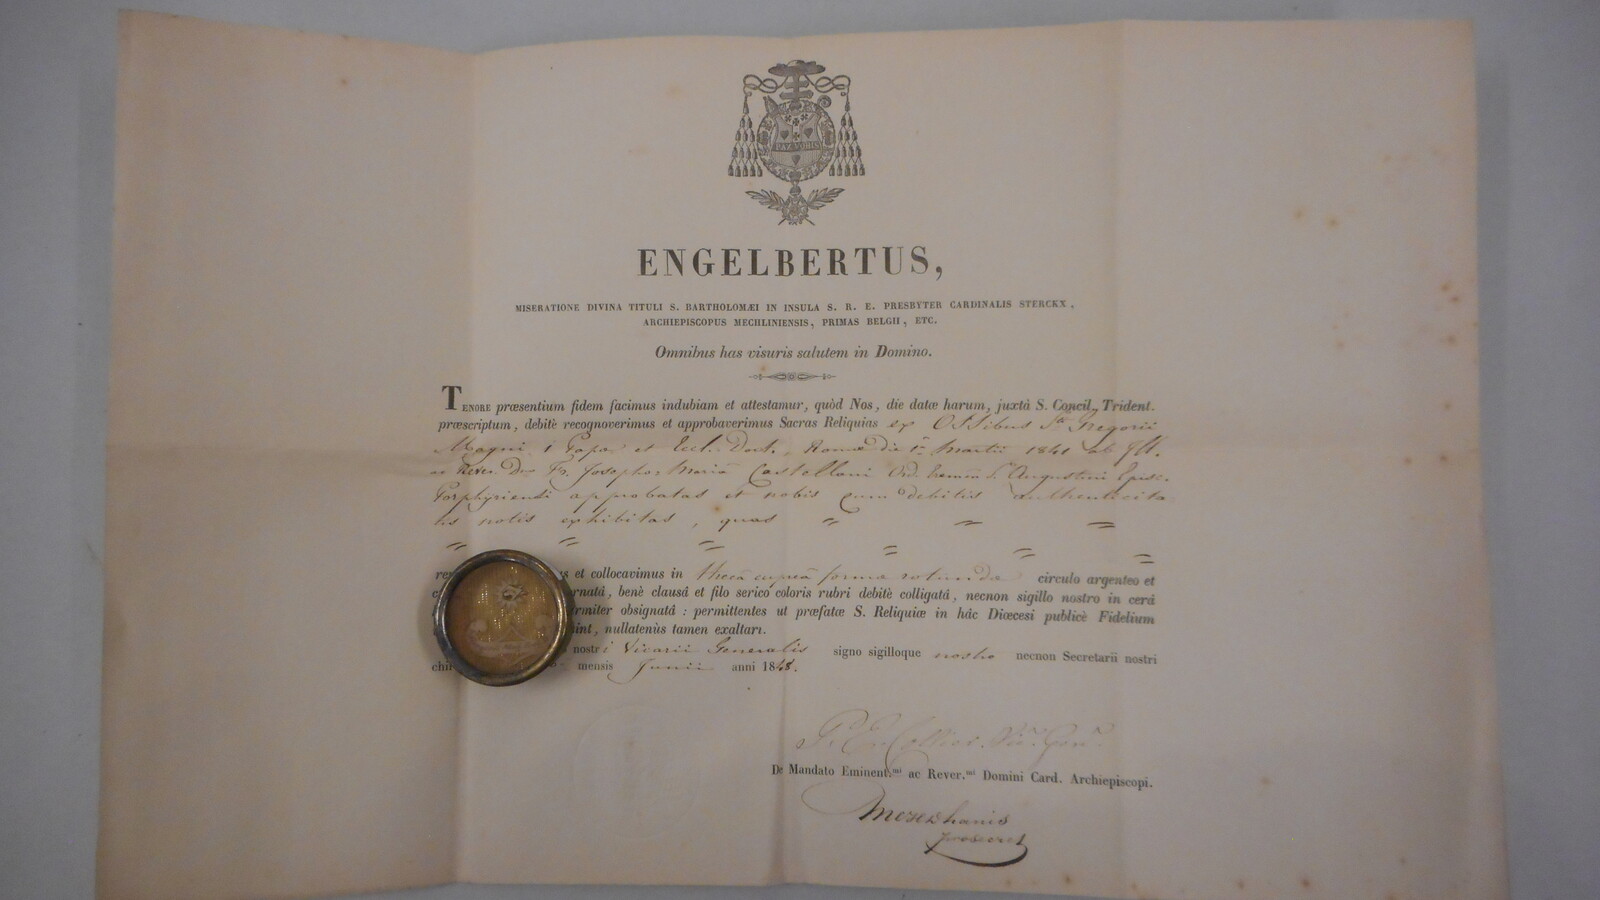 PAX VOBIS
ENGELBERTUS,
MISERATIONE DIVINA TITULI S. BARTHOLOMÆI IN INSULA S. R. E. PRESBYTER CARDINALIS STERCKX,
ARCHIEPISCOPUS MECHLINIENSIS, PRIMAS BELGII, ETC.
Omnibus has visuris salutem in Domino.
TENORE præsentium fidem facimus indubiam et attestamur, quòd Nos, die datæ harum, juxtà S. Concil. Trident.
præscriptum, debitè recognoverimus et approbaverimus Sacras Reliquias ex Ossibus Sti Gregorii
Magni 1 Papæ et Eccl. Doct., Romæ die 1a Martii 1841 ab Ill.
ac Rever. Dno Fr. Josepho Mariâ Castellani Ord. Erem. Sti Augustini Episc.
Porphyriensi approbatas et nobis cum debitis authenticita
tis notis exhibitas, quas
et collocavimus in thecâ cupreâ formæ rotundæ circulo argenteo et
bené clausâ et filo serico coloris rubri debitè colligatâ, necnon sigillo nostro in cerâ
obsignatâ : permittentes ut præfatæ S. Reliquiæ in hâc Diœcesi publicè Fidelium
nullatenùs tamen exaltari.
nostri Vicarii Generalis signo sigilloque nostro necnon Secretarii nostri
mensis Junii anni 1848.
Vic. Gen.
De Mandato Eminent.mi ac Rever.mi Domini Card. Archiepiscopi.
prosecret